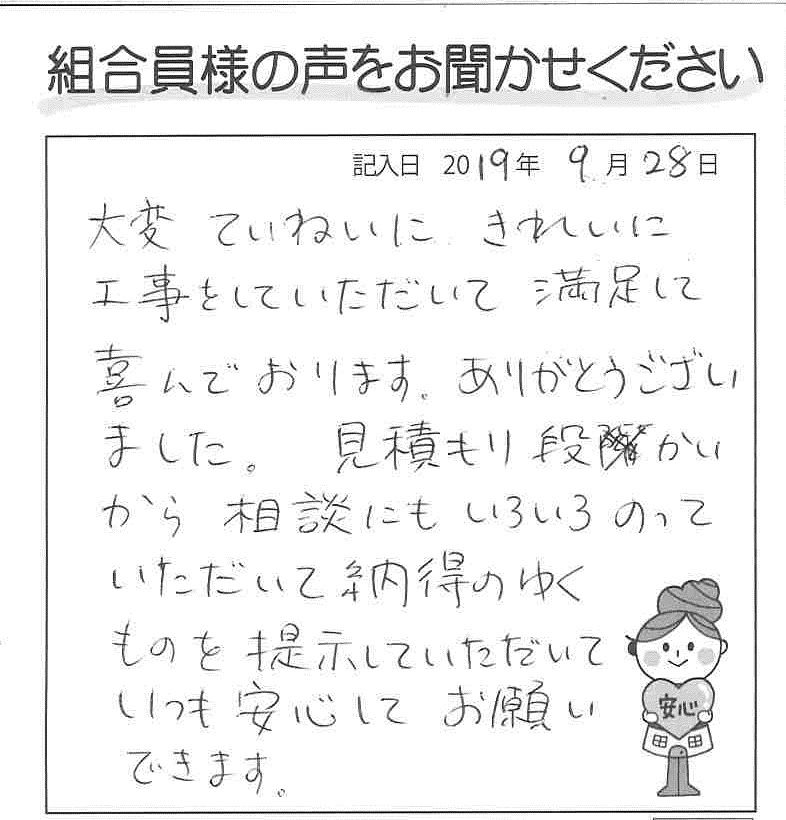 組合員様の声をお聞かせください
記入日 2019年 9月28日
大変 ていねいに きれいに
工事をしていただいて 満足して
喜んでおります。ありがとうござい
ました。 見積もり 段 かい
から 相談にも いろいろ のって
いただいて 納得のゆく
ものを 提示していただいて
いつも 安心して お願い
できます。
安心